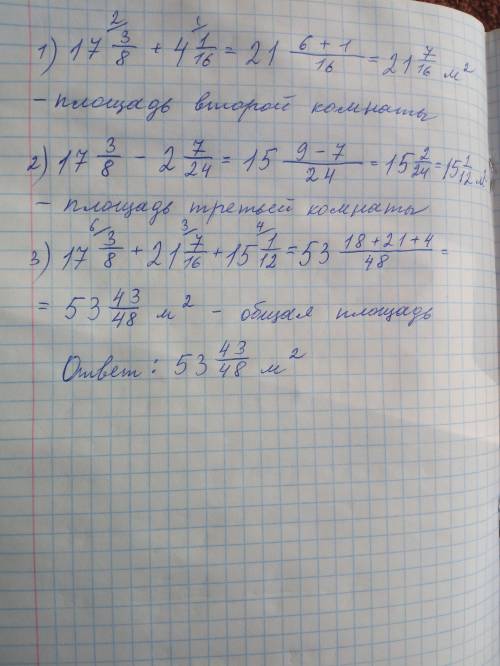 1) 17 3/8 + 4 1/16 = 21 (6 + 1)/16 = 21 7/16 м²
– площадь второй комнаты
2) 17 3/8 – 2 7/24 = 15 (9 – 7)/24 = 15 2/24 = 15 1/12 м²
– площадь третьей комнаты
3) 17 3/8 + 21 7/16 + 15 1/12 = 53 (18 + 21 + 4)/48 =
= 53 43/48 м² – общая площадь
Ответ: 53 43/48 м²